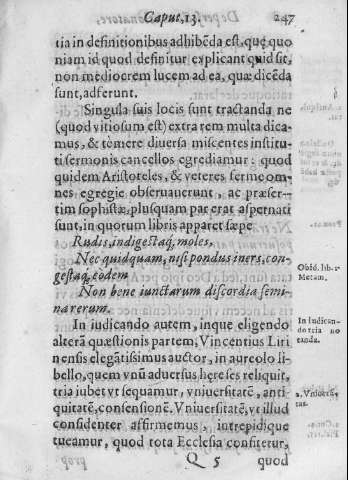 Caput, 13. 247
tia in definitionibus adhibēda est, quę quo
niam id quod definitur explicant quid sit,
non mediocrem lucem ad ea, quæ dicēda
sunt, adferunt.
Singula suis locis sunt tractanda ne
(quod vitiosum est) extra rem multa dica-
mus, & temere diversa miscentes institu-
ti sermonis cancellos egrediamur: quod
quidem Aristoteles, & veteres ferme om-
nes egregie obseruauerunt, ac præser-
tim sophistæ, plusquam par erat aspernati
sunt, in quorum libris apparet sæpe
Rudis, indigestaq; moles,
Nec quidquam, nisi pondus iners, con-
gestaq; eodem
Non bene iunctarum discordia semi-
na rerum.
Obid. lib. 1.
Metam.
In iudicando autem, inque eligendo
alterā quæstionis partem, Vincentius Liri
nensis elegātissimus auctor, in aureolo li-
bello, quem vnū aduersus hęreses reliquit,
tria iubet vt sequamur, vniuersitatē, anti
quitatē, consensionē. Vniuersitatē, vt illud
considenter affirmemus, intrepidique
tueamur, quod tota Ecclesia confitetur,
In iudican-
do tria no
tanda.
1. Vniuersi-
tas.
Q 5 quod